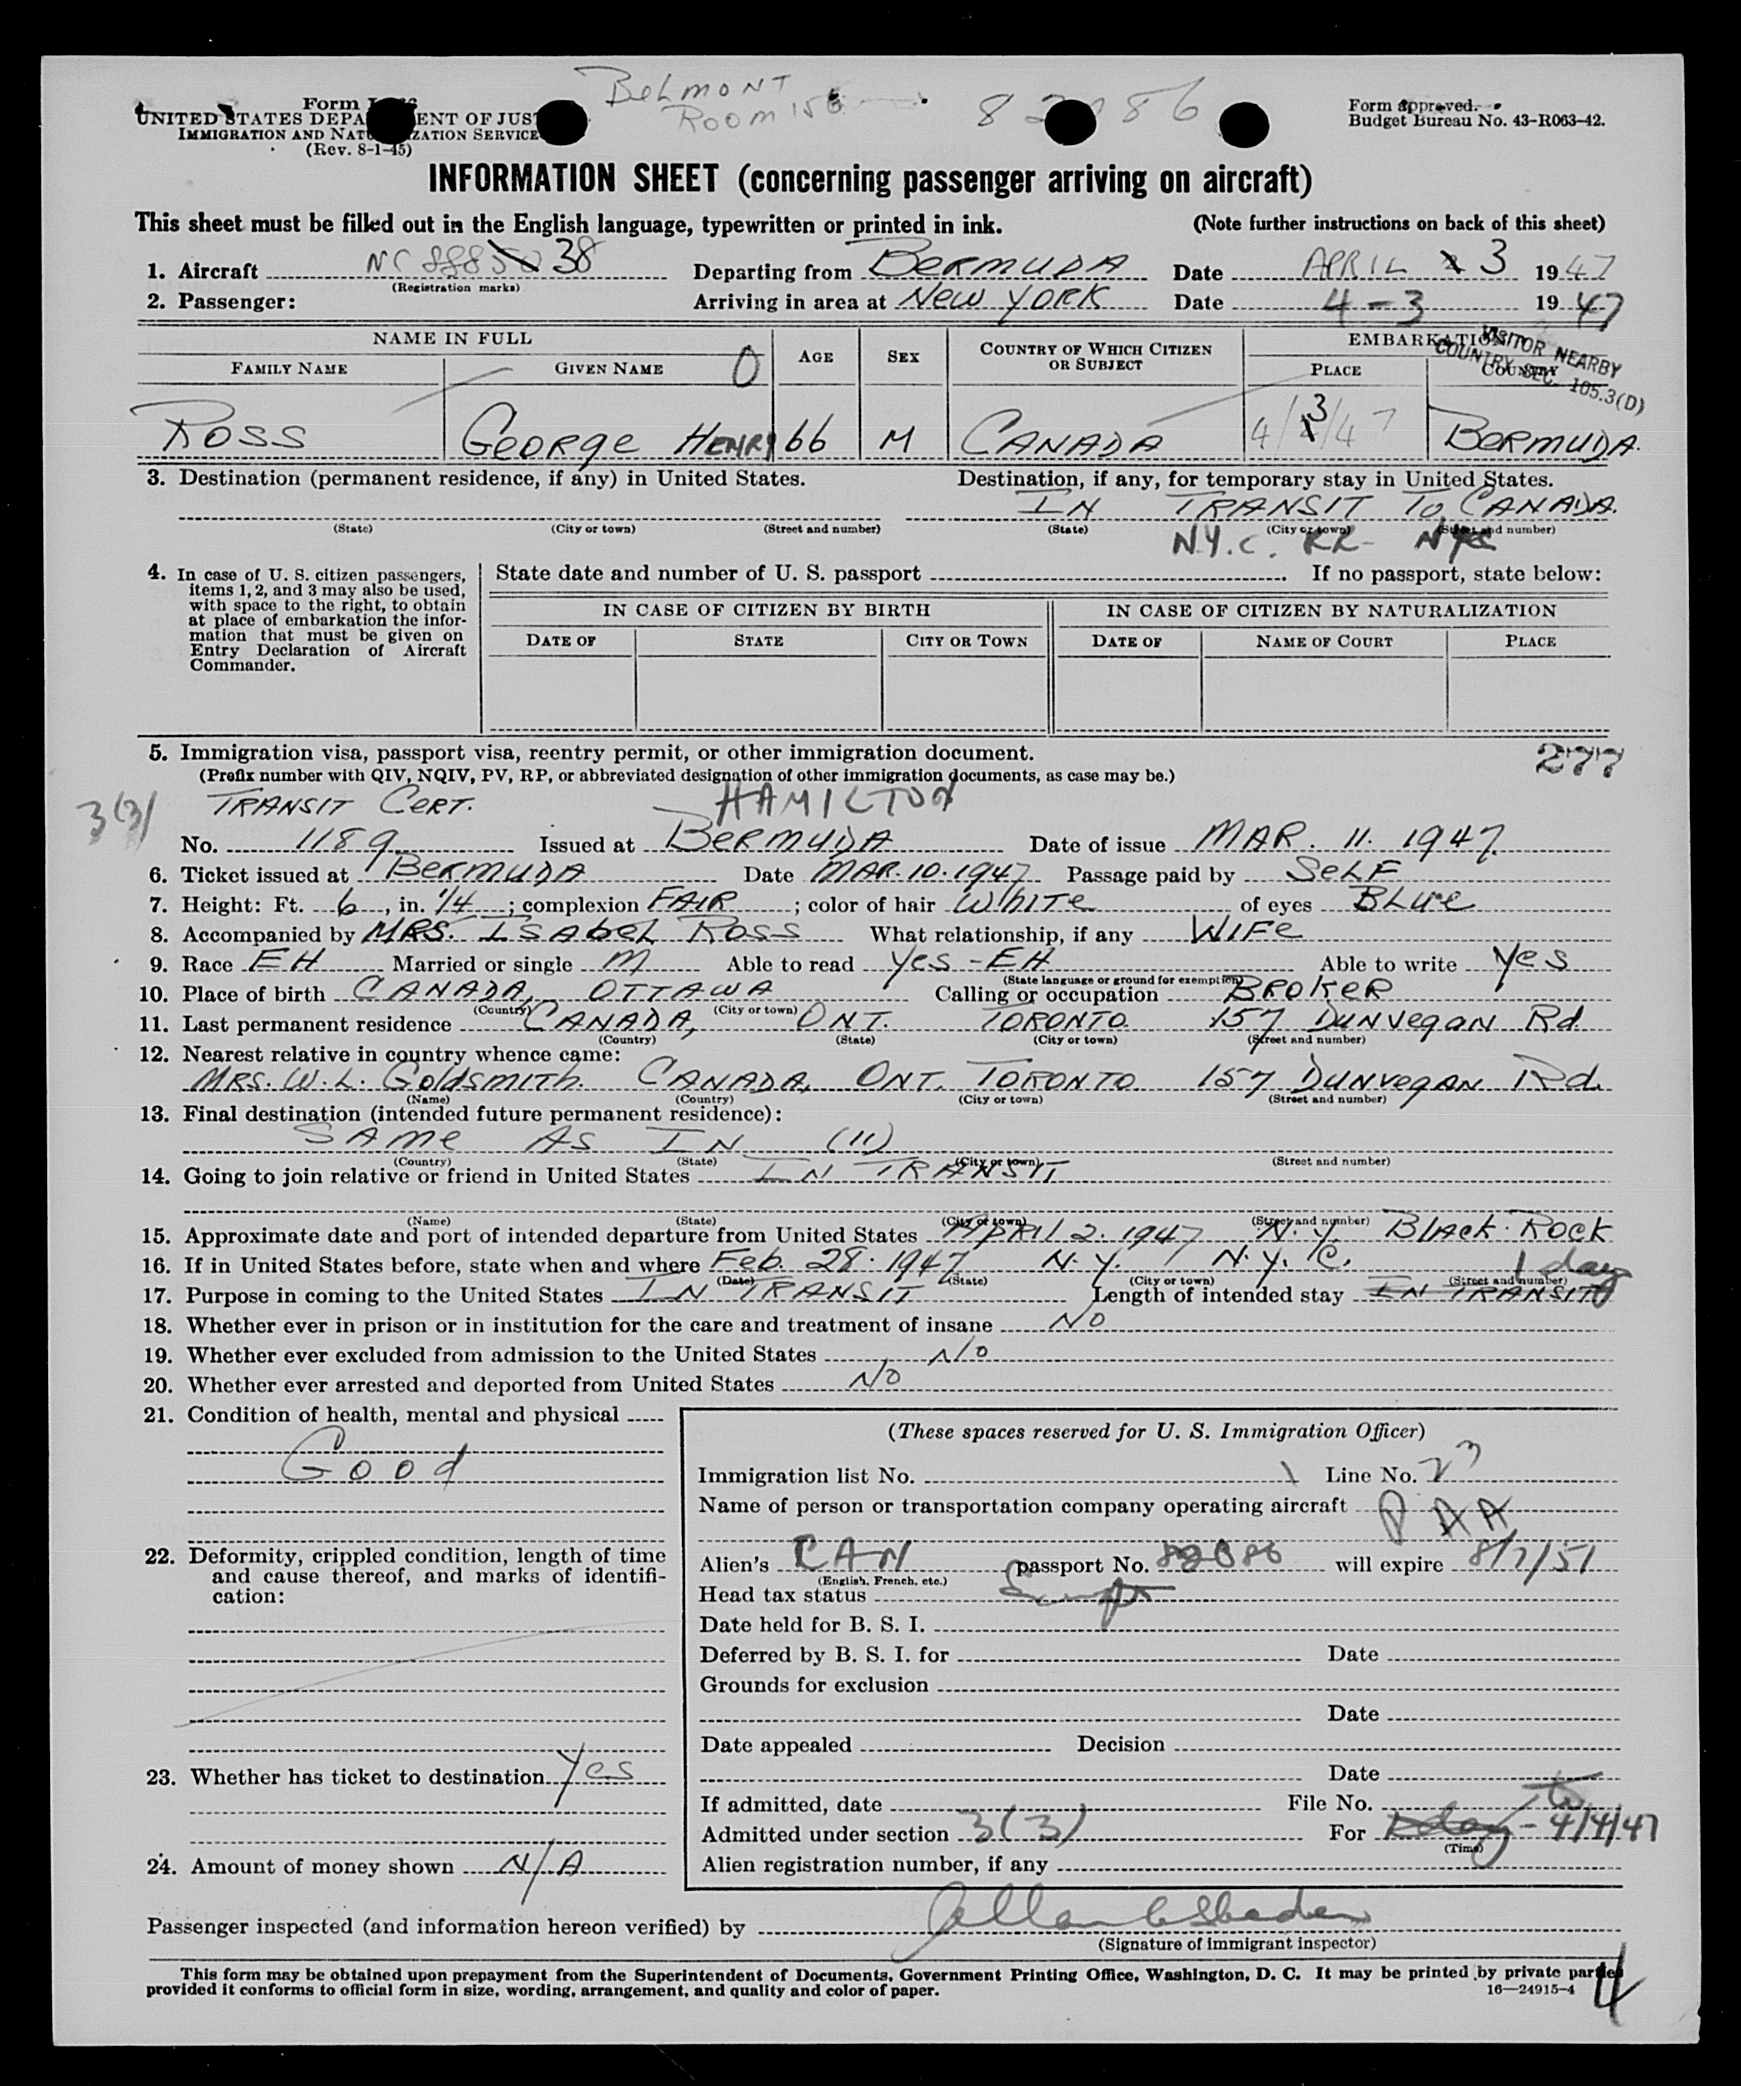 BELMONT
ROOM 156
Form
UNITED STATES DEPA ENT OF JUS
IMMIGRATION AND NAT ZATION SERVICE
(Rev. 8-1-45)
Form approved.
Budget Bureau No. 43-R063-42.
INFORMATION SHEET (concerning passenger arriving on aircraft)
This sheet must be filled out in the English language, typewritten or printed in ink. (Note further instructions on back of this sheet)
1. Aircraft NC 88850 38 Departing from BERMUDA Date APRIL 2 3 1947
(Registration marks)
2. Passenger: Arriving in area at NEW YORK Date 4-3 1947
VISITOR NEARBY
COUNTRY SEC. 105.3(D)
NAME IN FULL EMBARKATION
FAMILY NAME GIVEN NAME O AGE SEX COUNTRY OF WHICH CITIZEN OR SUBJECT PLACE COUNTRY
ROSS GEORGE HENRY 66 M CANADA 4/3/47 BERMUDA.
3. Destination (permanent residence, if any) in United States. Destination, if any, for temporary stay in United States.
IN TRANSIT TO CANADA.
(State) (City or town) (Street and number) (State) (City or town) (Street and number)
N.Y.C. RR- NYC
4. In case of U. S. citizen passengers,
items 1, 2, and 3 may also be used,
with space to the right, to obtain
at place of embarkation the infor-
mation that must be given on
Entry Declaration of Aircraft
Commander.
State date and number of U. S. passport If no passport, state below:
IN CASE OF CITIZEN BY BIRTH IN CASE OF CITIZEN BY NATURALIZATION
DATE OF STATE CITY OR TOWN DATE OF NAME OF COURT PLACE
5. Immigration visa, passport visa, reentry permit, or other immigration document. 277
(Prefix number with QIV, NQIV, PV, RP, or abbreviated designation of other immigration documents, as case may be.)
3(3) TRANSIT CERT. HAMILTON
No. 1189 Issued at BERMUDA Date of issue MAR. 11. 1947.
6. Ticket issued at BERMUDA Date MAR. 10. 1947 Passage paid by SELF
7. Height: Ft. 6, in. 1/4; complexion FAIR; color of hair WHITE of eyes BLUE
8. Accompanied by MRS. ISABEL ROSS What relationship, if any WIFE
9. Race EH Married or single M Able to read YES - EH Able to write YES
(State language or ground for exemption)
10. Place of birth CANADA, OTTAWA Calling or occupation BROKER
(Country) (City or town)
11. Last permanent residence CANADA, ONT. TORONTO 157 DUNVEGAN Rd.
(Country) (State) (City or town) (Street and number)
12. Nearest relative in country whence came:
MRS. W. L. GOLDSMITH. CANADA, ONT. TORONTO 157 DUNVEGAN Rd.
(Name) (Country) (City or town) (Street and number)
13. Final destination (intended future permanent residence):
SAME AS IN (11)
(Country) (State) (City or town) (Street and number)
14. Going to join relative or friend in United States IN TRANSIT
(Name) (State) (City or town) (Street and number)
15. Approximate date and port of intended departure from United States APRIL 2. 1947 N.Y. BLACK ROCK
16. If in United States before, state when and where Feb. 28. 1947 N.Y. N.Y.C.
(Date) (State) (City or town) (Street and number)
1 day
17. Purpose in coming to the United States IN TRANSIT Length of intended stay IN TRANSIT
18. Whether ever in prison or in institution for the care and treatment of insane NO
19. Whether ever excluded from admission to the United States NO
20. Whether ever arrested and deported from United States NO
21. Condition of health, mental and physical
GOOD
22. Deformity, crippled condition, length of time
and cause thereof, and marks of identifi-
cation:
23. Whether has ticket to destination YES
24. Amount of money shown N/A
(These spaces reserved for U. S. Immigration Officer)
Immigration list No. 1 Line No. 23
Name of person or transportation company operating aircraft PAA
Alien's CAN passport No. 82086 will expire 8/7/51
(English, French, etc.)
Head tax status Exempt
Date held for B. S. I.
Deferred by B. S. I. for Date
Grounds for exclusion
Date
Date appealed Decision
Date
If admitted, date File No.
to
Admitted under section 3(3) For 1 day - 4/4/47
(Time)
Alien registration number, if any
Passenger inspected (and information hereon verified) by
(Signature of immigrant inspector)
This form may be obtained upon prepayment from the Superintendent of Documents, Government Printing Office, Washington, D. C. It may be printed by private parties
provided it conforms to official form in size, wording, arrangement, and quality and color of paper. 16—24915-4
4